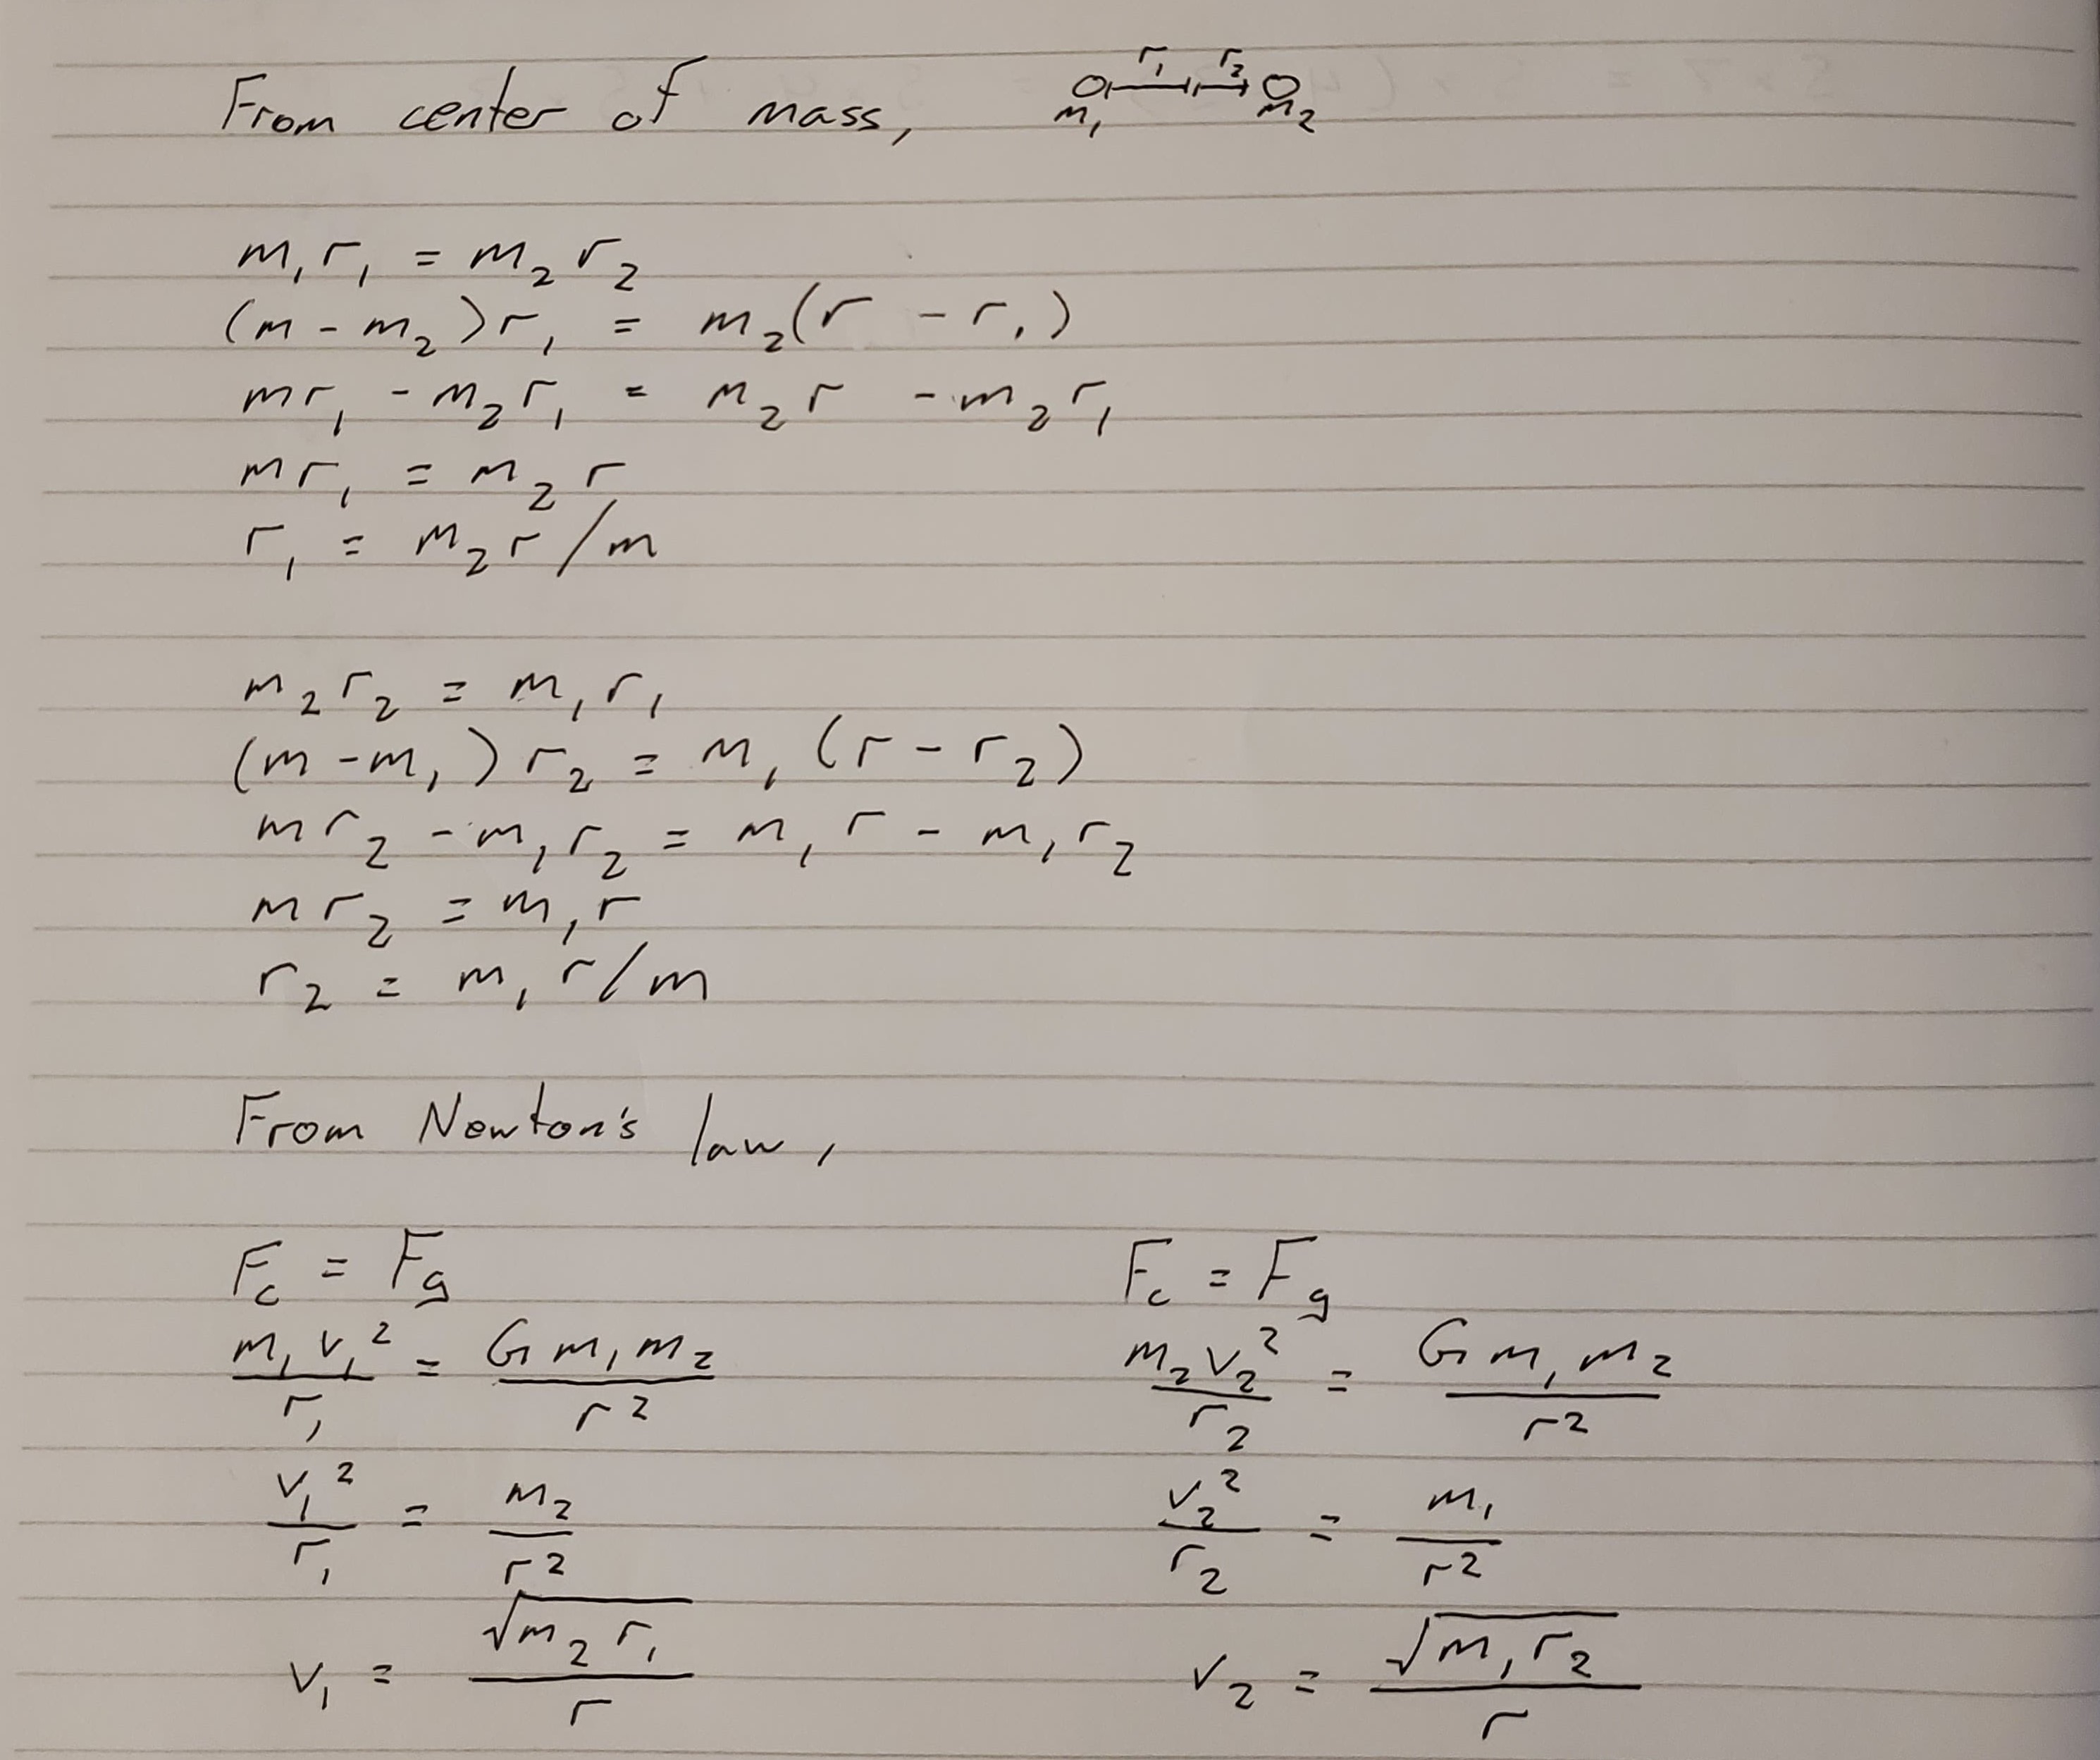 From center of mass,
r₁ r₂
m₁ m₂
m₁r₁ = m₂r₂
(m - m₂)r₁ = m₂(r - r₁)
mr₁ - m₂r₁ = m₂r - m₂r₁
mr₁ = m₂r
r₁ = m₂r/m
m₂r₂ = m₁r₁
(m - m₁)r₂ = m₁(r - r₂)
mr₂ - m₁r₂ = m₁r - m₁r₂
mr₂ = m₁r
r₂ = m₁r/m
From Newton's law,
F_c = F_g
m₁v₁²/r₁ = Gm₁m₂/r²
v₁²/r₁ = m₂/r²
v₁ = √(m₂r₁)/r
F_c = F_g
m₂v₂²/r₂ = Gm₁m₂/r²
v₂²/r₂ = m₁/r²
v₂ = √(m₁r₂)/r